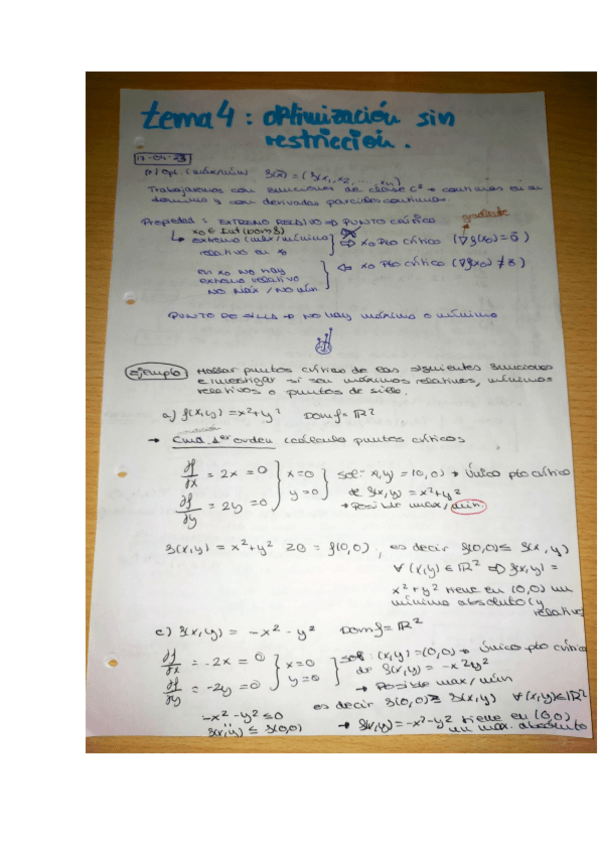 tema 4: optimización sin
restricción.
17-04-23
Trabajaremos con funciones de clase C² → continuas en su
dominio y con derivadas parciales continuas.
gradiente
Propiedad: EXTREMO RELATIVO ⇒ PUNTO CRÍTICO
x₀ ∈ Int (Dom f)
extremo (max/mínimo) ⇒ x₀ pto crítico (∇f(x₀) = 0̄)
relativo en x₀
en x₀ no hay ⇐ x₀ pto crítico (∇f(x₀) ≠ 0̄)
extremo relativo
NO MÁX / NO MÍN
PUNTO DE SILLA → NO hay máximo o mínimo
Ejemplo Hallar puntos críticos de las siguientes funciones
e investigar si son máximos relativos, mínimos
relativos o puntos de silla.
a) f(x,y) = x² + y² Dom f = ℝ²
→ Cma 1er orden (cálculo puntos críticos
∂f/∂x = 2x = 0 } x = 0 } sol: (x,y) = (0,0) → Único pto crítico
∂f/∂y = 2y = 0 } y = 0 } de f(x,y) = x² + y²
→ Posible max/min.
f(x,y) = x² + y² ≥ 0 = f(0,0), es decir f(0,0) ≤ f(x,y)
∀ (x,y) ∈ ℝ² ⇒ f(x,y) =
x² + y² tiene en (0,0) un
mínimo absoluto (y
relativo
c) f(x,y) = -x² - y² Dom f = ℝ²
∂f/∂x = -2x = 0 } x = 0 } sol: (x,y) = (0,0) → Único pto crítico
∂f/∂y = -2y = 0 } y = 0 } de f(x,y) = -x²y²
→ Posible max/min
es decir f(0,0) ≥ f(x,y) ∀(x,y) ∈ ℝ²
-x² - y² ≤ 0 → f(x,y) = -x² - y² tiene en (0,0)
f(x,y) ≤ f(0,0) un max. absoluto